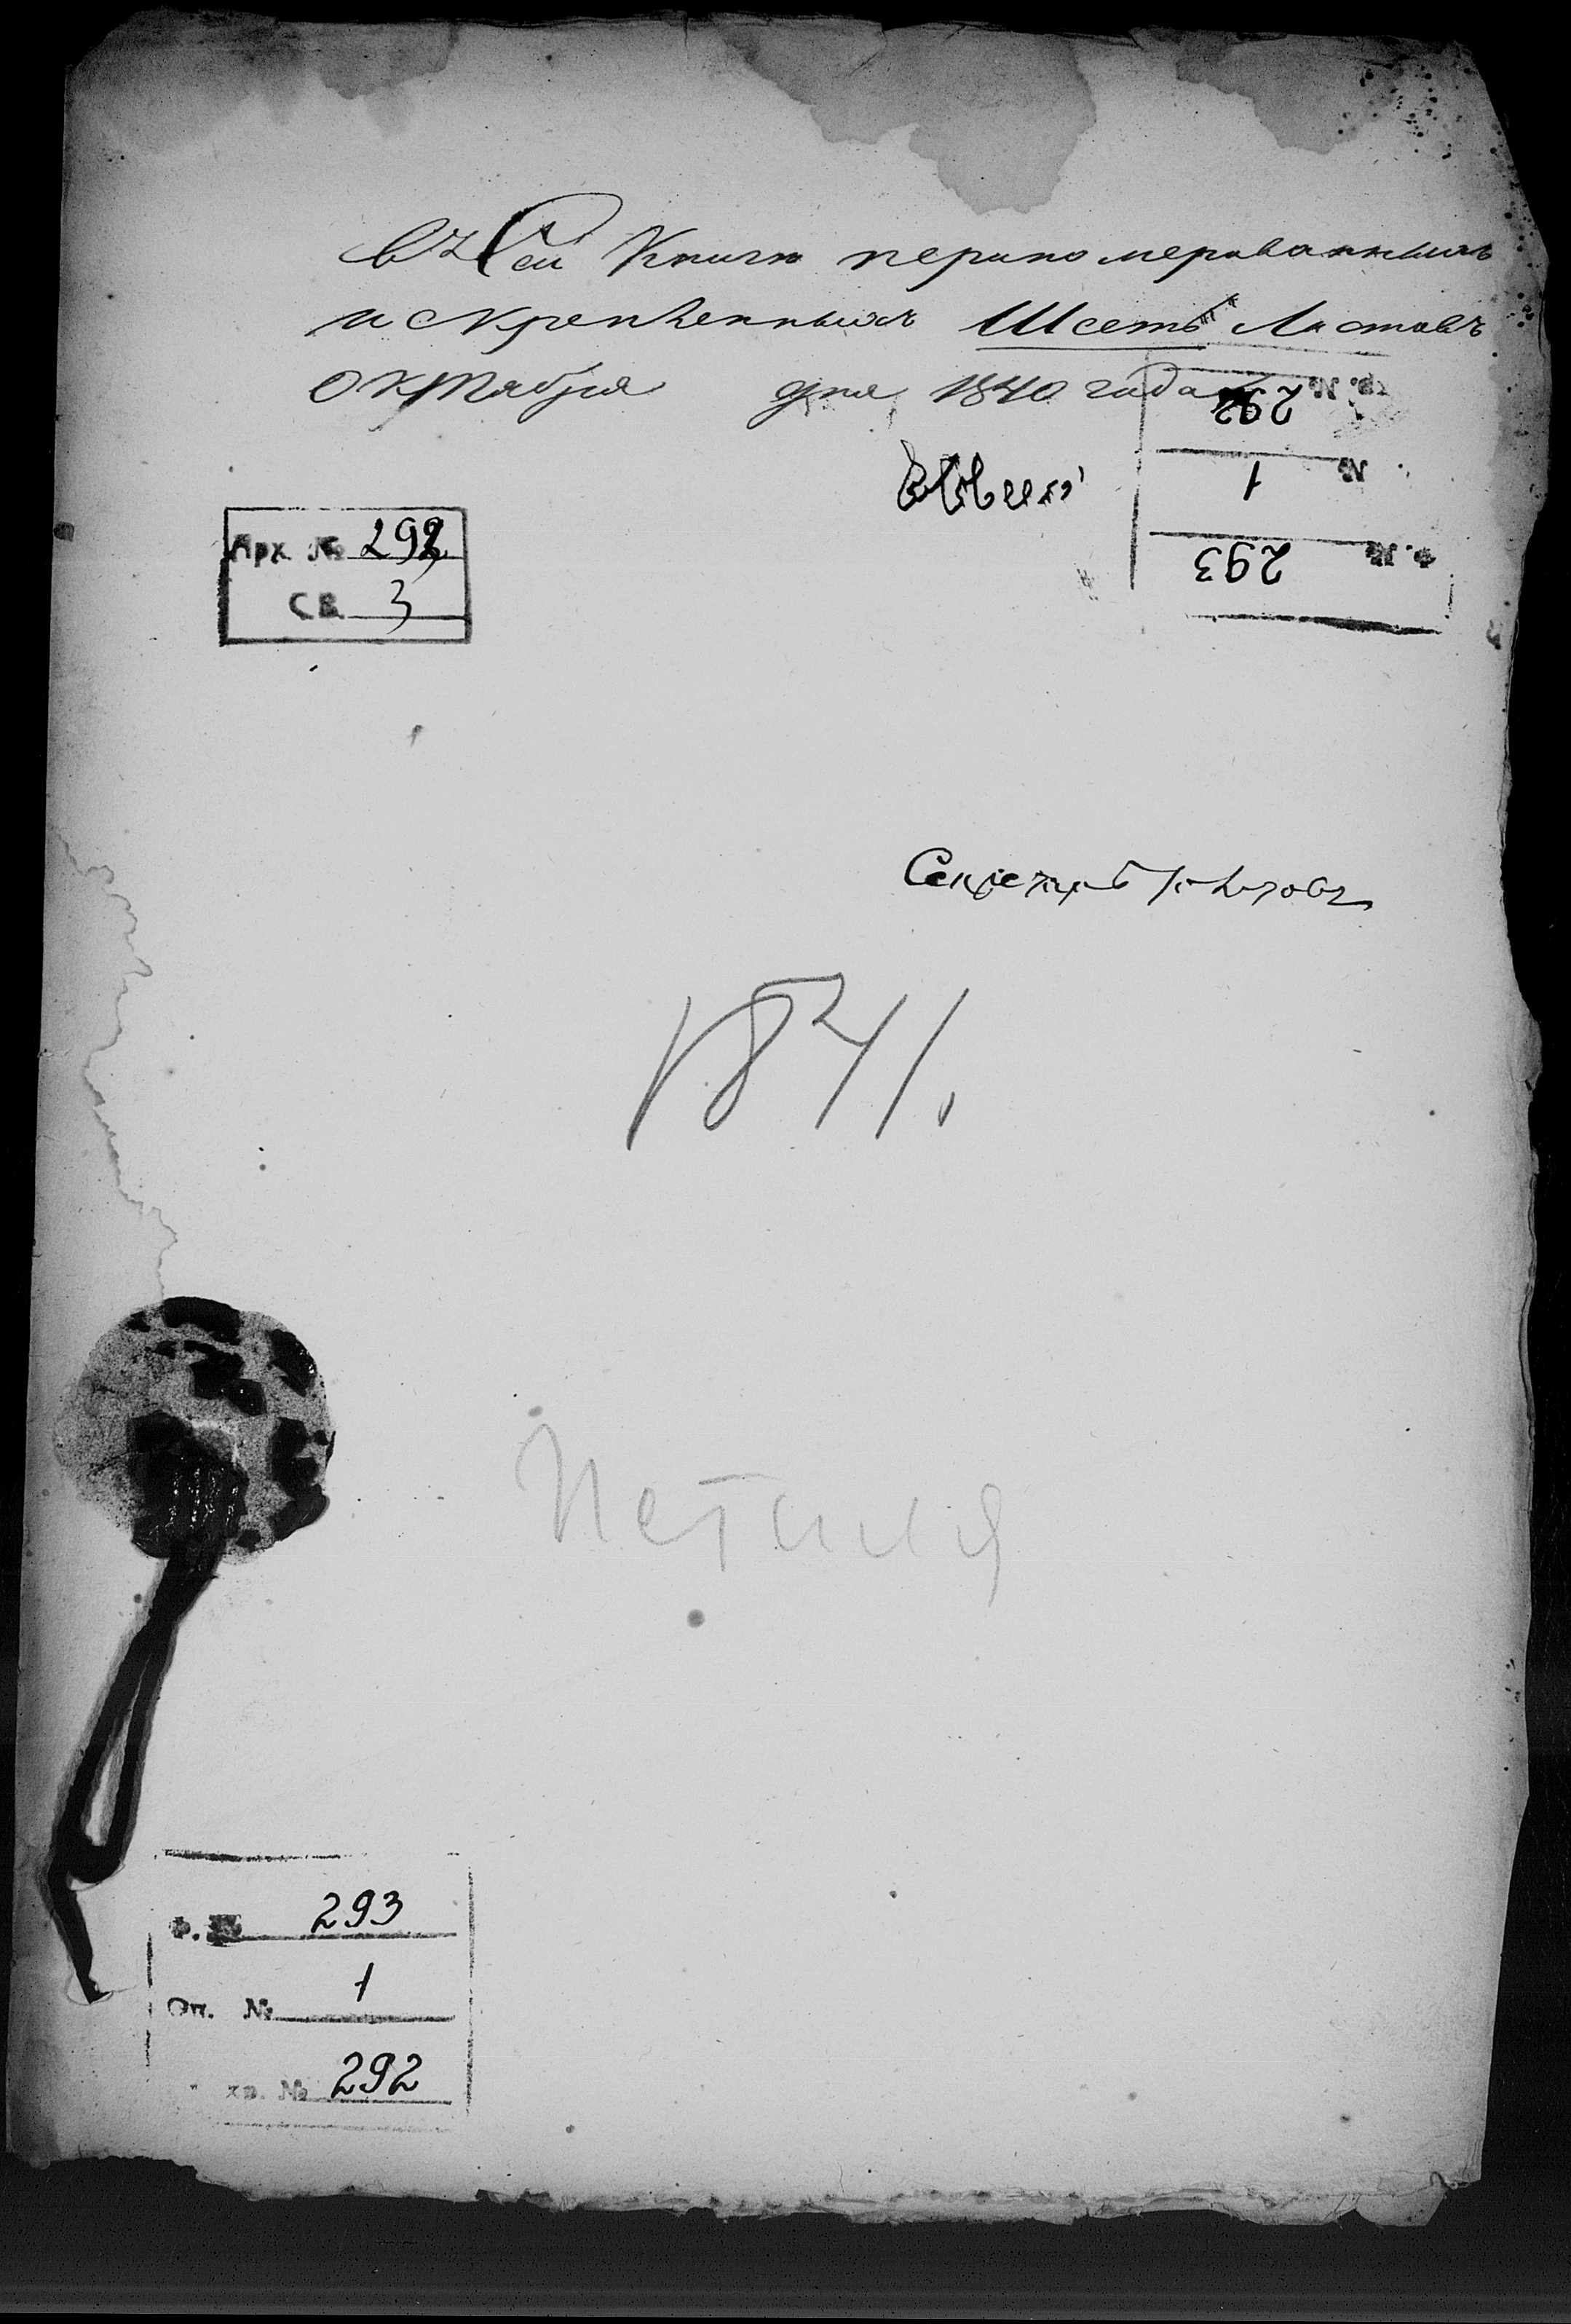 Въ сей Книги перономерованныхъ
и скрепленныхъ Шесть Листовъ
Октября дня 1840 года
Хр. № 292
№ 1
Ф. № 293
Арх. № 292
СВ. 3
Секретарь
1841.
Ф. № 293
Оп. № 1
хр. № 292